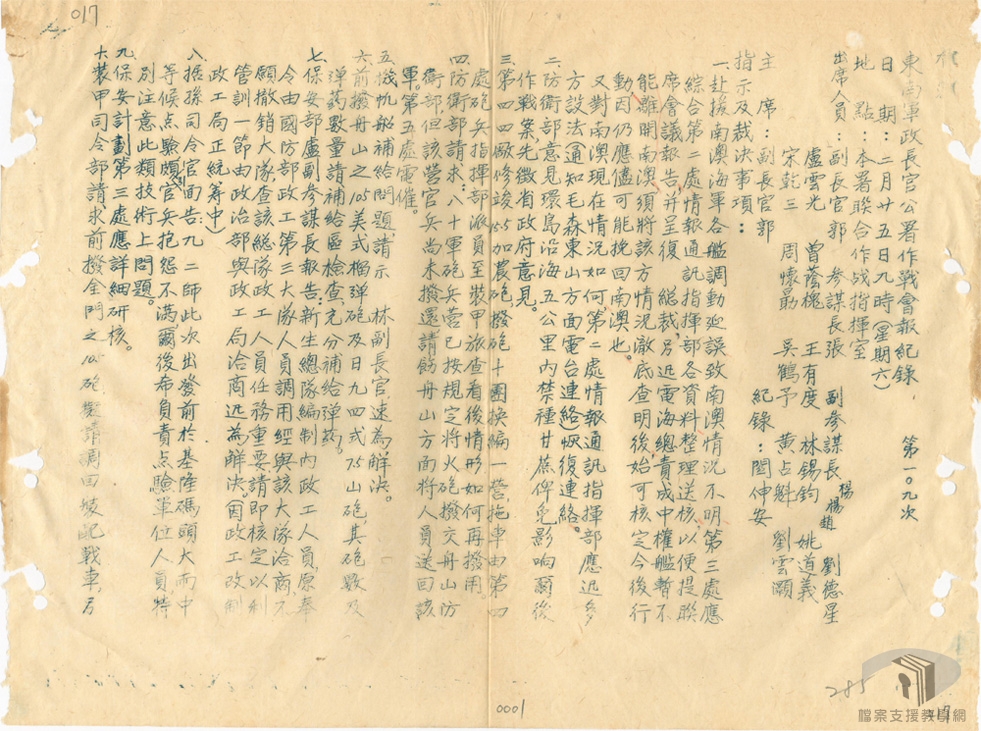 017
東南軍政長官公署作戰會報紀錄 第一〇九次
日期:二月廿五日九時(星期六)
地點:本署聯合作戰指揮室
出席人員:副長官郭 參謀長張 副參謀長 楊 楊 趙 劉德星
盧雲光 曾蔭槐 王有度 林錫鈞 姚道義
宋乾三 周懷勗 吳鶴予 黃占魁 劉雲灝
主席:副長官郭 紀錄:閻仲安
指示及裁決事項:
一、赴援南澳海軍各艦調動延誤致南澳情況不明第三處應
綜合第二處情報通訊指揮部各資料整理送核以便提聯
席會議報告并呈復 總裁另迅電海總責成中權艦暫不
能離開南澳須將該方情況澈底查明後始可核定今後行
動因仍應儘可能挽回南澳也。
又對南澳現在情況如何第二處情報通訊指揮部應迅多
方設法(通知毛森東山方面電台連絡)恢復連絡。
二、防衛部意見環島沿海五公里內禁種甘蔗俾免影響爾後
作戰案,先徵省政府意見。
三、第四四廠修竣155加農砲撥砲十團換編一營,拖車由第四
處砲兵指揮部派員至裝甲旅查看後情形如何再撥用。
四、防衛部請求:八十軍砲兵營已按規定將火砲撥交舟山防
衛部但該營官兵尚未撥還請飭舟山方面將人員送回該
軍。第五處電催。
五、機帆船補給問題,請示 林副長官,速為解決。
六、前撥舟山之105美式榴彈砲及日九四式75山砲,其砲數及
彈藥數量請補給區檢查,充分補給彈藥。
七、保安部盧副參謀長報告:新生總隊編制內政工人員,原奉
令由國防部政工第三大隊人員調用經與該大隊洽商不
願撤銷大隊查該總隊政工人員任務重要請即核定以利
管訓一節由政治部與政工局洽商迅為解決。(因政工改制
政工局正統籌中)
八、据孫司令官面告:九二師此次出發前於基隆碼頭大雨中
等候点驗頗官兵抱怨不滿,爾後布員責点驗單位人員特
別注意此類技術上問題。
九、保安計劃第三處應詳細研核。
十、裝甲司令部請求前撥金門之105砲擬請調回裝配戰車,另
0001
285
17
檔案支援教學網